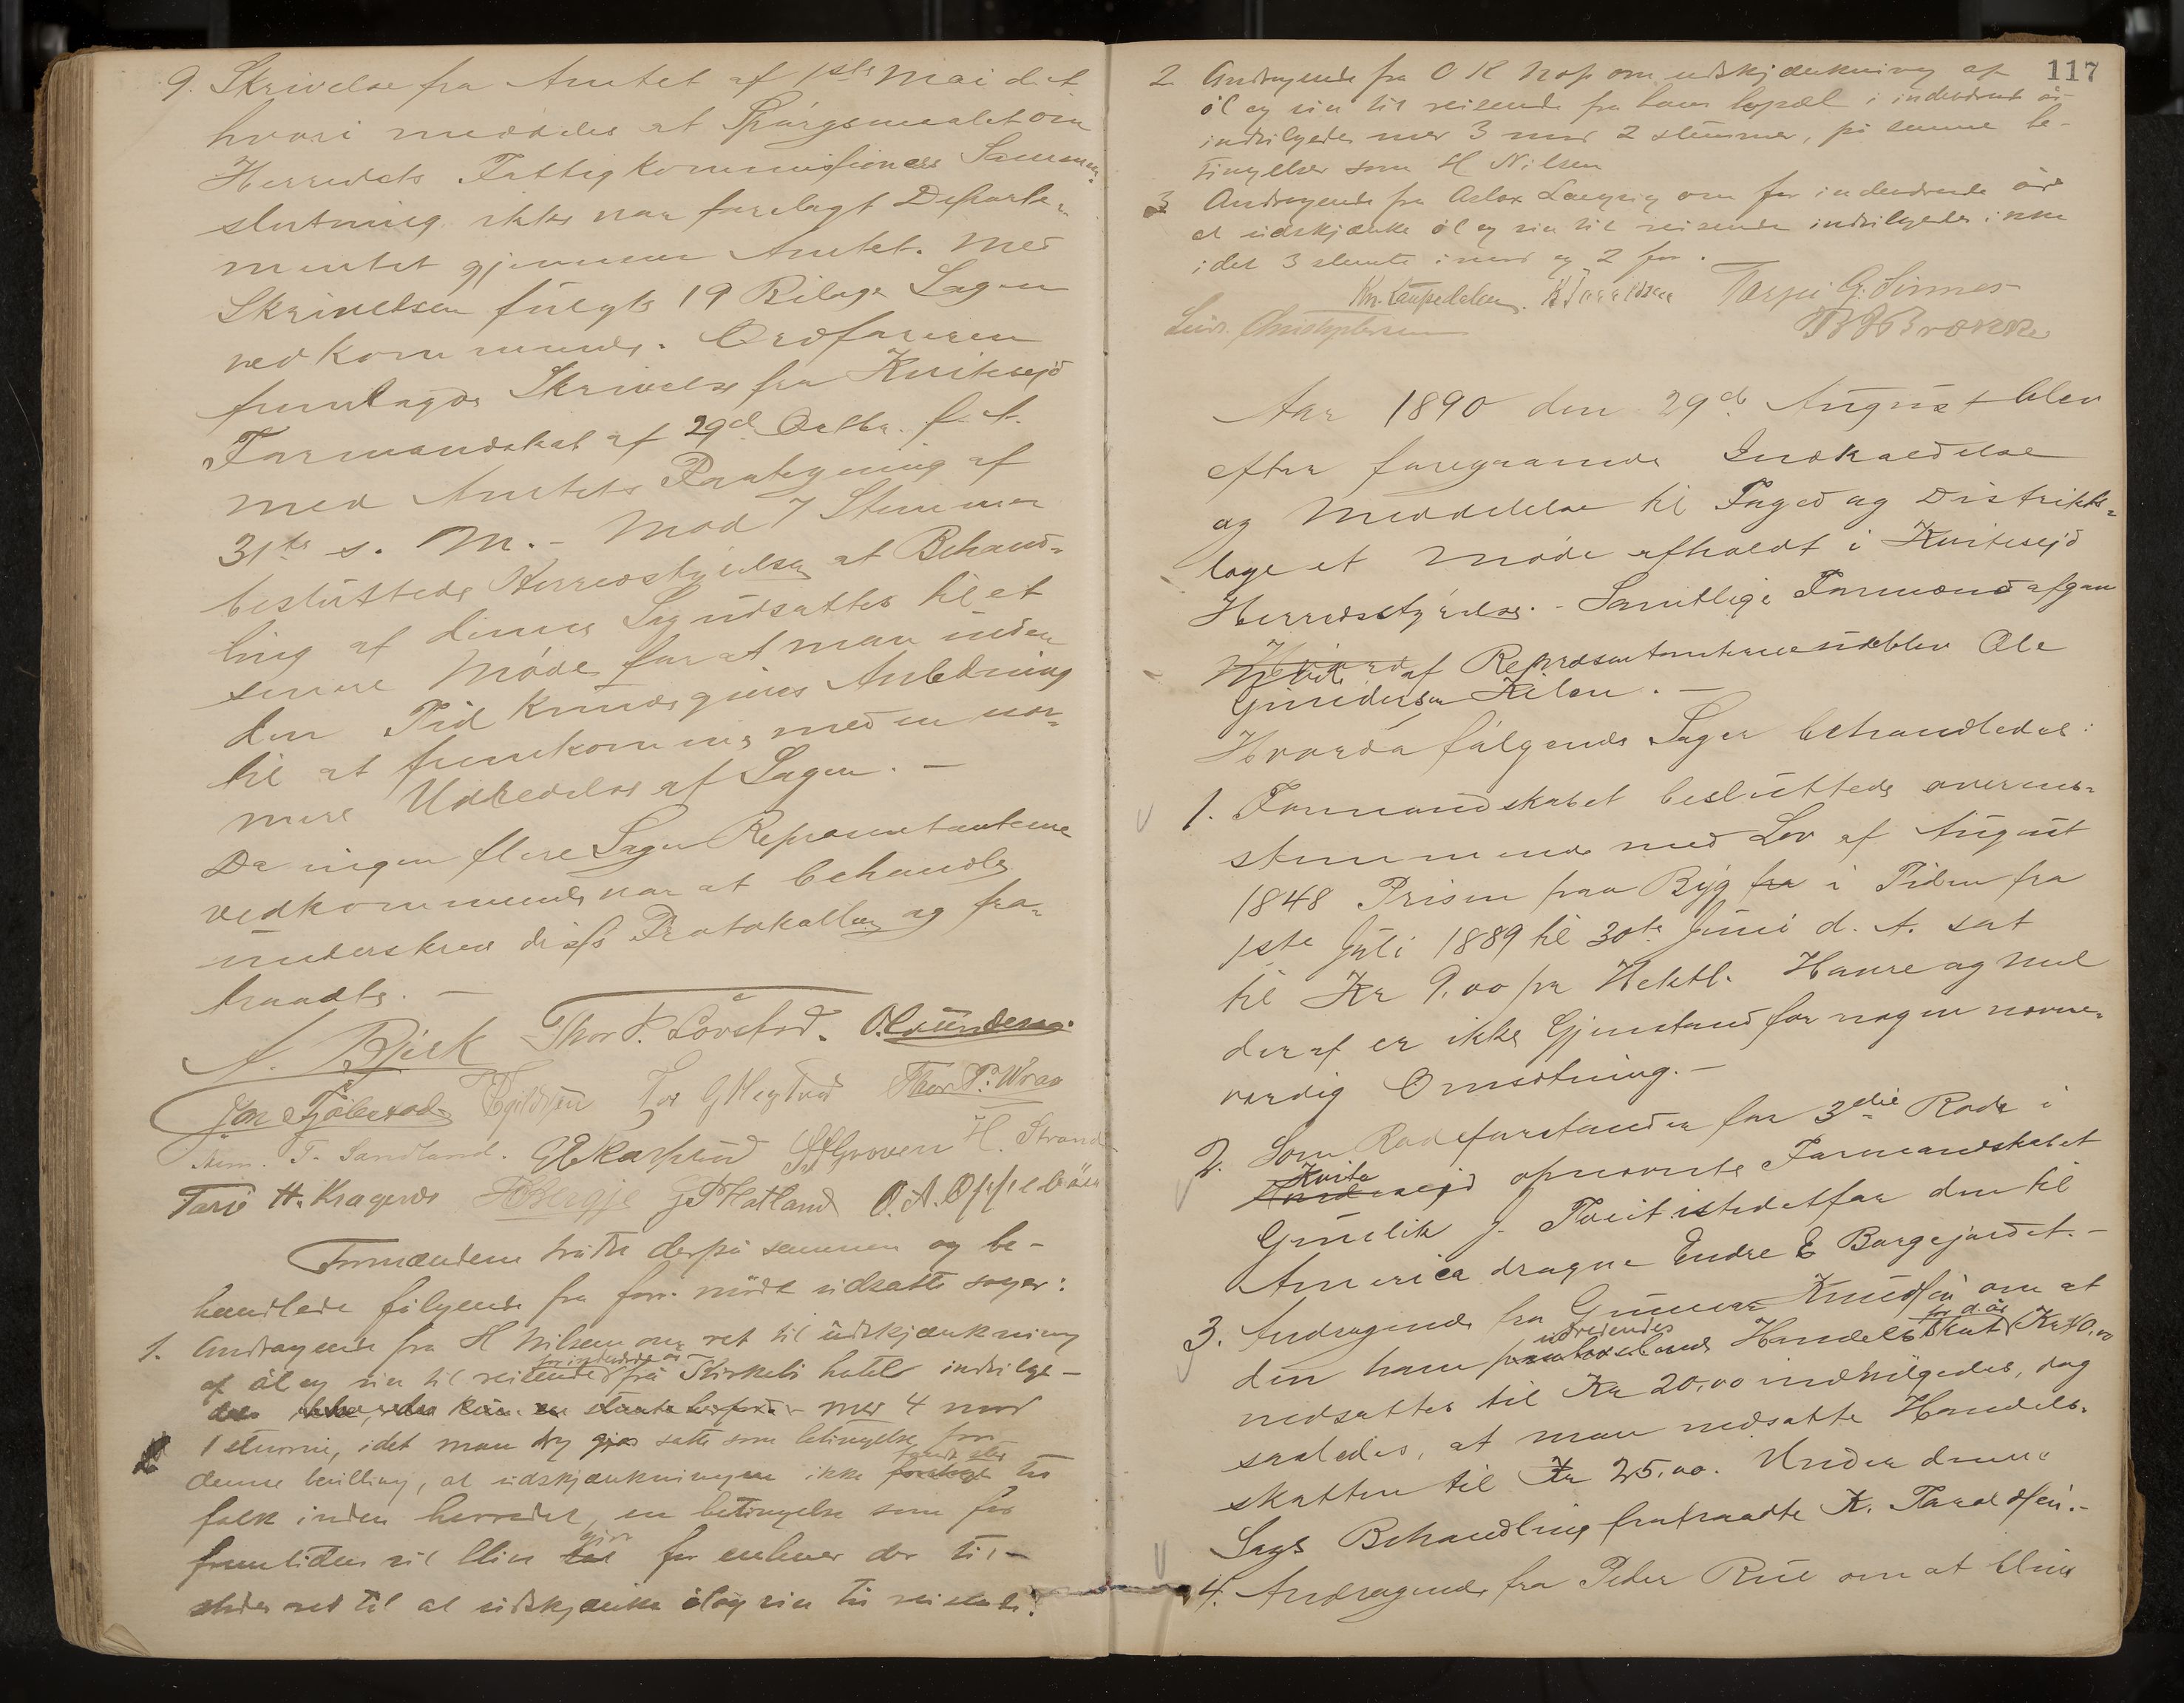 9. Skrivelse fra Amtet af 1ste Mai d. A.
hvori meddeles at Spørgsmaalet om
Herredets Fattigkommissioners Sammen-
slutning ikke var forelagt Departe-
mentet gjennem Amtet. Med
Skrivelsen fulgte 19 Bilage Sagen
vedkommende. Ordføreren
fremlagde Skrivelse fra Kvitesejd
Formandskab af 29de Oktbr. f. A.
med Amtets Paategning af
31te s. M. – Mod 7 Stemmer
besluttede Herredsstyrelsen at Behand-
ling af denne Sag udsattes til et
senere Møde for at man inden
den Tid kunde gives Anledning
til at fremkomme med en nær-
mere Udredelse af Sagen. –
Da ingen flere Sager Repræsentanterne
vedkommende var at behandle
underskrev disse Protokollen og fra-
traadte. –
A. Bjick Thor P. Lovstad. O. Gundersen.
Jon Fjølestad T. G. Hegtved Thor P. Wraa
T. Sandland. G E Kasphud S H Groven H. Strand
Tarie H. Kragenes H Berge G P Hatland O. A. Oppeboen
Formændene traadte derpaa sammen og be-
handlede følgende fra forr. møde udsatte sager:
1. Andragende fra H Nilsen om ret til udskjænkning
for indeværende år
af øl og vin til reisende fra Kirkebø hotel indvilge-
des med 4 mod
1 stemme, idet man dog gjør satte som betingelse for
finde sted
denne bevilling, at udskjænkningen ikke foretages til
folk inden herredet, en betingelse som for
fremtiden vil blive for enhver der til-
stedes ret til at udskjænke øl og vin til reisende.
117
2. Andragende fra O K Nop om udskjænkning af
øl og vin til reisende fra hans bopæl i indeværende år
indvilgedes med 3 mod 2 stemmer, på samme be-
tingelser som H Nilsen
3 Andragende fra Aslak Langsig om for indeværende år
at udskjænke øl og vin til reisende indvilgedes ikke
idet 3 stemte imod og 2 for.
Kn. Laupedalen. K Taraldsen Tarjei G. Sinnes
Ludv. Christophersen B J Brække
Aar 1890 den 29de August blev
efter foregaaende Indkaldelse
og Meddelelse til Foged og Distrikts-
læge et Møde afholdt i Kvitesejd
Herredsstyrelse. – Samtlige Formænd afgav
Møde af Repræsentanterne udeblev Ole
Gundersen Kilen. –
Hvorda følgende Sager behandledes:
1. Formandskabet besluttede overens-
stemmende med Lov af August
1848 Prisen paa Byg fra i Tiden fra
1ste Juli 1889 til 30te Juni d. A. sat
til Kr 9.00 pr Hektl. Havre og Mel
deraf er ikke Gjenstand for nogen nævne-
værdig Omsætning. –
2. Som Rodeforstander for 3die Rode i
Kvite
sejd opnævnte Formandskabet
Gunelik J. Tveit istedetfor den til
America dragne Endre E Bargejordet. –
3. Andragende fra Gunnar Knudsen om at
udreiendes for d. år
den ham Handelsskat Kr 40.00
nedsattes til Kr 20.00 indvilgedes, dog
saaledes, at man nedsatte Handels-
skatten til Kr 25.00. Under denne
Sags Behandling fratraadte K. Taraldsen. –
4. Andragende fra Peder Rue om at blive